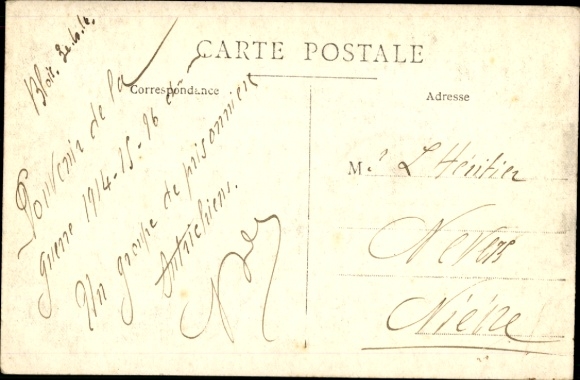 CARTE POSTALE
Correspondance
Adresse
Blois.
Souvenir de la
guerre 1914-15-16
Un groupe de prisonniers
Autrichiens.
M. L'Héritier
Nevers
Nièvre